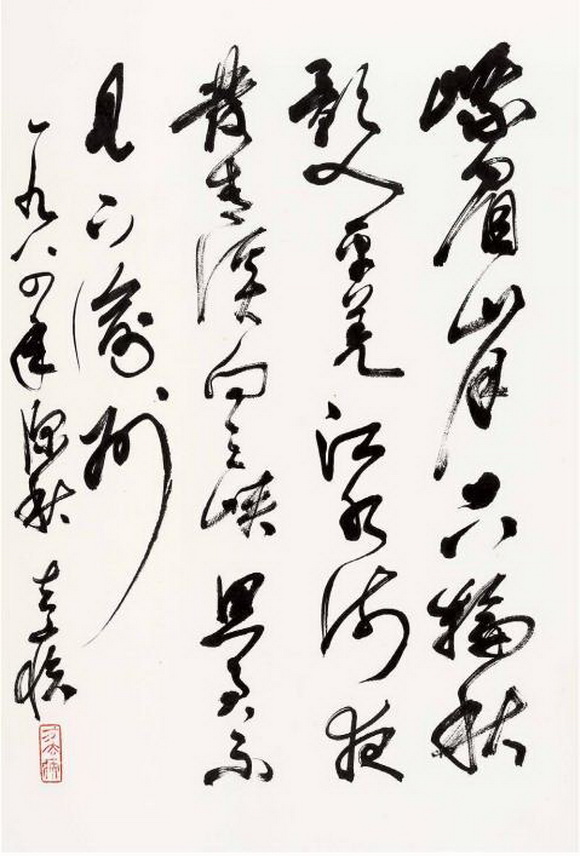 峨眉山月半輪秋
影入平羌江水流夜
發清溪向三峽思君不
見下渝州
一九八四年深秋